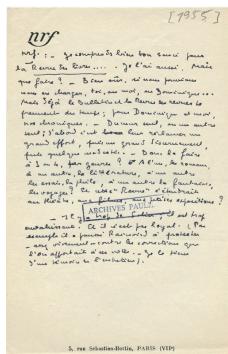 [1955]
nrf
nrf. : - Je comprends bien ton souci pour
la Revue des livres..... Je l'ai aussi. Mais
que faire ? - Bien sûr, si nous pouvions
nous en charger, toi, ou moi, ou Dominique...
Mais déjà le Bulletin et la Revue des revues te
prennent du temps ; pour Dominique et moi,
nos chroniques. - Demeure seul, ou un autre
seul ; d'abord cela leur
grand effort, puis un grand
puis quelque - Donc le faire
à 3 ou 4, par genres ? A l'un, les romans,
à un autre, la littérature, à un autre
les essais, la philo, à un autre la fantaisie,
les voyages ? La "Revue" s'étendrait
au théâtre, aux films, aux petites expositions ?
- Il y a trop de est trop
Et il n'est pas loyal. (Par
exemple il a protester
- contre les corrections que
l'on apportait à ses notes. Je le tiens
ARCHIVES PAULHAN
5, rue Sébastien-Bottin, PARIS (VIIe)